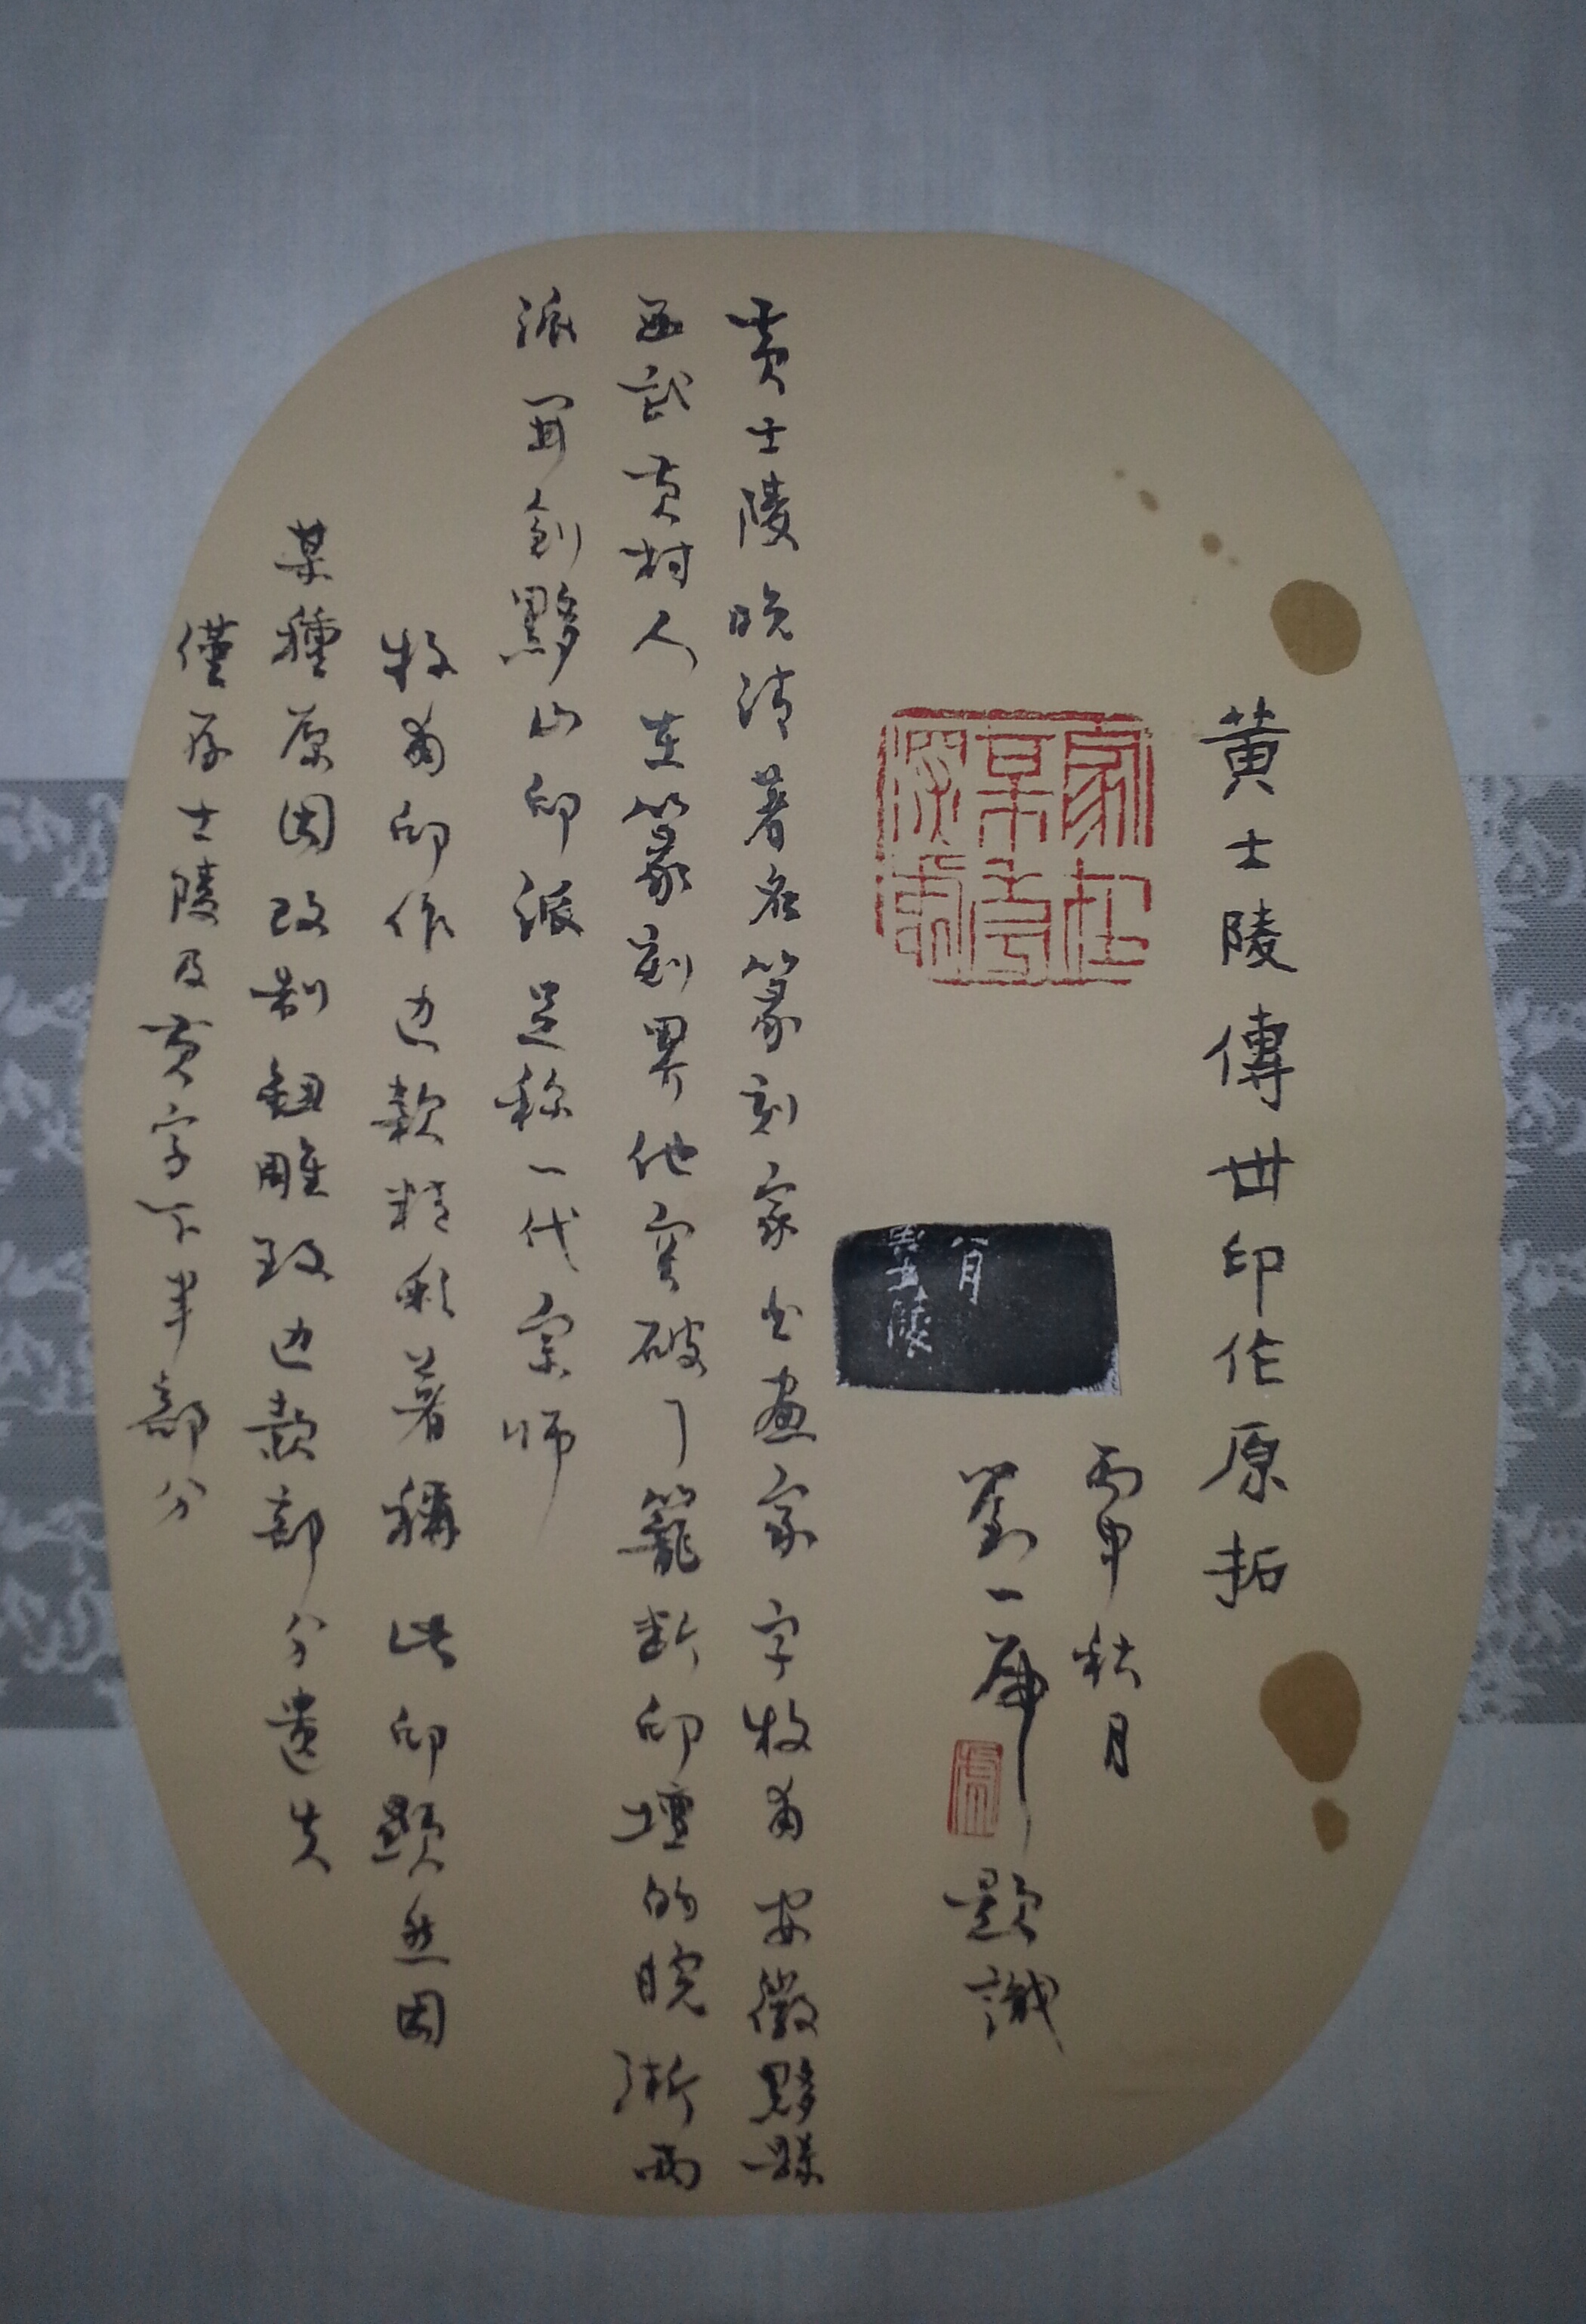 黄士陵傳世印作原拓
家在某亭深處
月
士陵
丙申秋月
劉一
題識
黄士陵晚清著名篆刻家书画家字牧甫安徽黟縣
西武黄村人在篆刻界他突破了籠断印壇的皖浙两
派開創黟山印派足称一代宗师
牧甫印作边款精彩著稱此印顯然因
某種原因改制鈕雕致边款部分遺失
僅存士陵及黄字下半部分